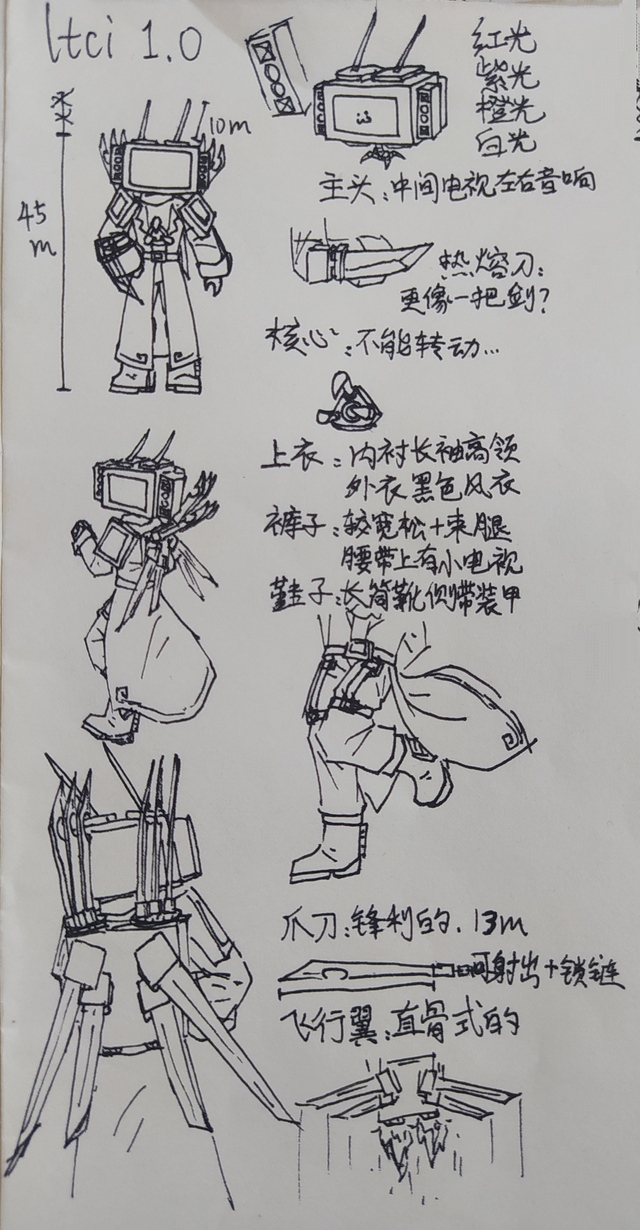 ltci 1.0
红光
紫光
橙光
白光
10m
45
m
主头:中间电视左右音响
热熔刀:
更像一把剑?
核心:不能转动...
上衣:内衬长袖高领
外衣黑色风衣
裤子:较宽松+束腿
腰带上有小电视
鞋子:长筒靴侧带装甲
爪刀:锋利的.13m
可射出+锁链
飞行翼:直骨式的